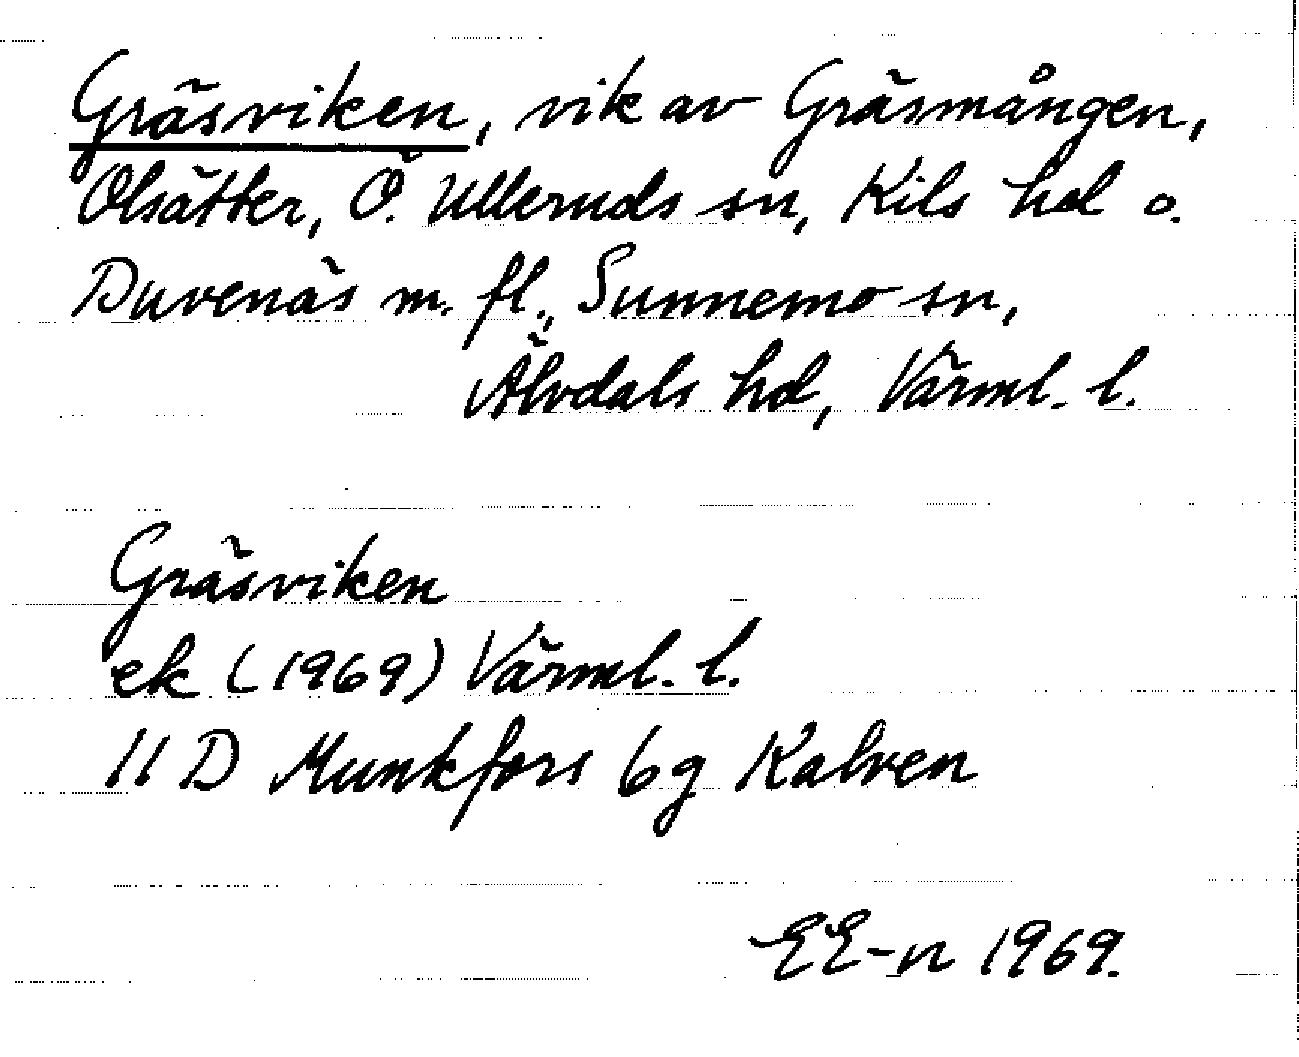 Gräsviken, vik av Gräsmången,
Olsätter, Ö. Ulleruds sn, Kils hd o.
Duvenäs m. fl., Sunnemo sn,
Älvdals hd, Värml. l.
Gräsviken
ek (1969) Värml. l.
11 D Munkfors 6g Kalven
EE-n 1969.